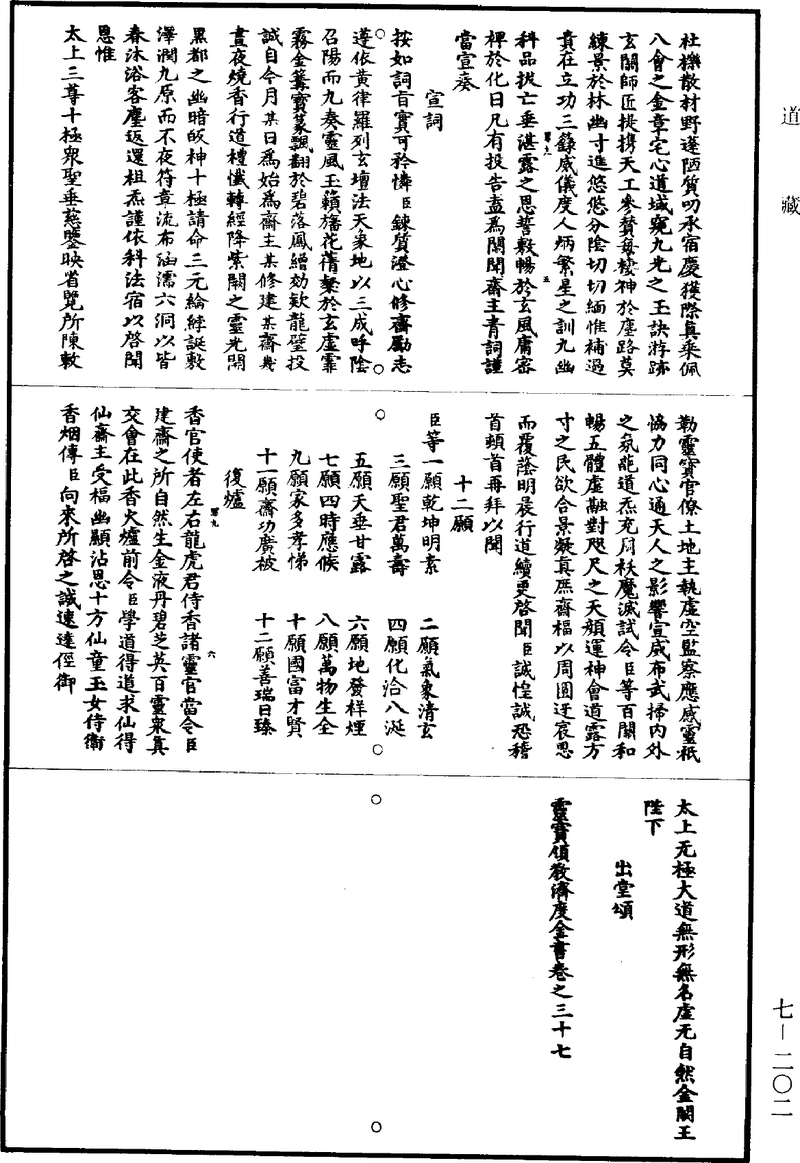 道藏
杜櫟散材野蓬陋質叨承宿慶獲際真乘佩
八會之金章宅心道域窺九光之玉訣游跡
玄關師匠提携天工參贊每棲神於塵路莫
練景於林幽寸進悠悠分陰切切緬惟補過
貴在立功三籙威儀度人炳繁星之訓九幽
科品拔亡垂湛露之恩誓敷暢於玄風庸密
裨於化日凡有投告盍為關聞齋主青詞謹
當宣奏
宣詞
按如詞旨實可矜憐臣鍊質澄心修齋勵志
遵依黃律羅列玄壇法天象地以三成呼陰
召陽而九奏靈風玉籟旛花蒨粲於玄虛霏
霧金篝寶篆飄翻於碧落鳳繒効欵龍璧投
誠自今月某日為始為齋主某修建某齋幾
晝夜燒香行道禮懺轉經降紫闕之靈光開
黑都之幽暗皈神十極請命三元綸綍誕敷
澤潤九原而不夜符章流布涵濡六洞以皆
春沐浴客塵返還祖炁謹依科法宿以啓聞
恩惟
太上三尊十極衆聖垂慈鑒映省覽所陳敕
勒靈寶官僚土地主執虛空監察應感靈祇
恊力同心通天人之影響宣威布武掃内外
之氛厖道炁充周秡魔滅試令臣等百關和
暢五體虛融對咫尺之天顔運神會道露方
寸之民欲合景凝真庶齋福以周圓迂哀恩
而覆蔭明晨行道續更啓聞臣誠惶誠恐稽
首頓首再拜以聞
十二願
臣等一願乾坤明素 二願氣象清玄
三願聖君萬壽 四願化洽八涎
五願天垂甘露 六願地發祥煙
七願四時應候 八願萬物生全
九願家多孝悌 十願國富才賢
十一願齋功廣被 十二願善瑞日臻
復爐
香官使者左右龍虎君侍香諸靈官當令臣
建齋之所自然生金液丹碧芝英百靈衆真
交會在此香火爐前令臣學道得道求仙得
仙齋主受福幽顯沾恩十方仙童玉女侍衛
香烟傳臣向來所啓之誠速達徑御
太上无極大道無形無名虛无自然金闕玉
陛下
出堂頌
靈寶領教濟度金書卷之三十七
七－二〇二